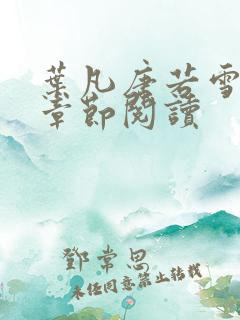 葉凡唐若雪
章節閱讀
鄧常思
未经同意禁止转载